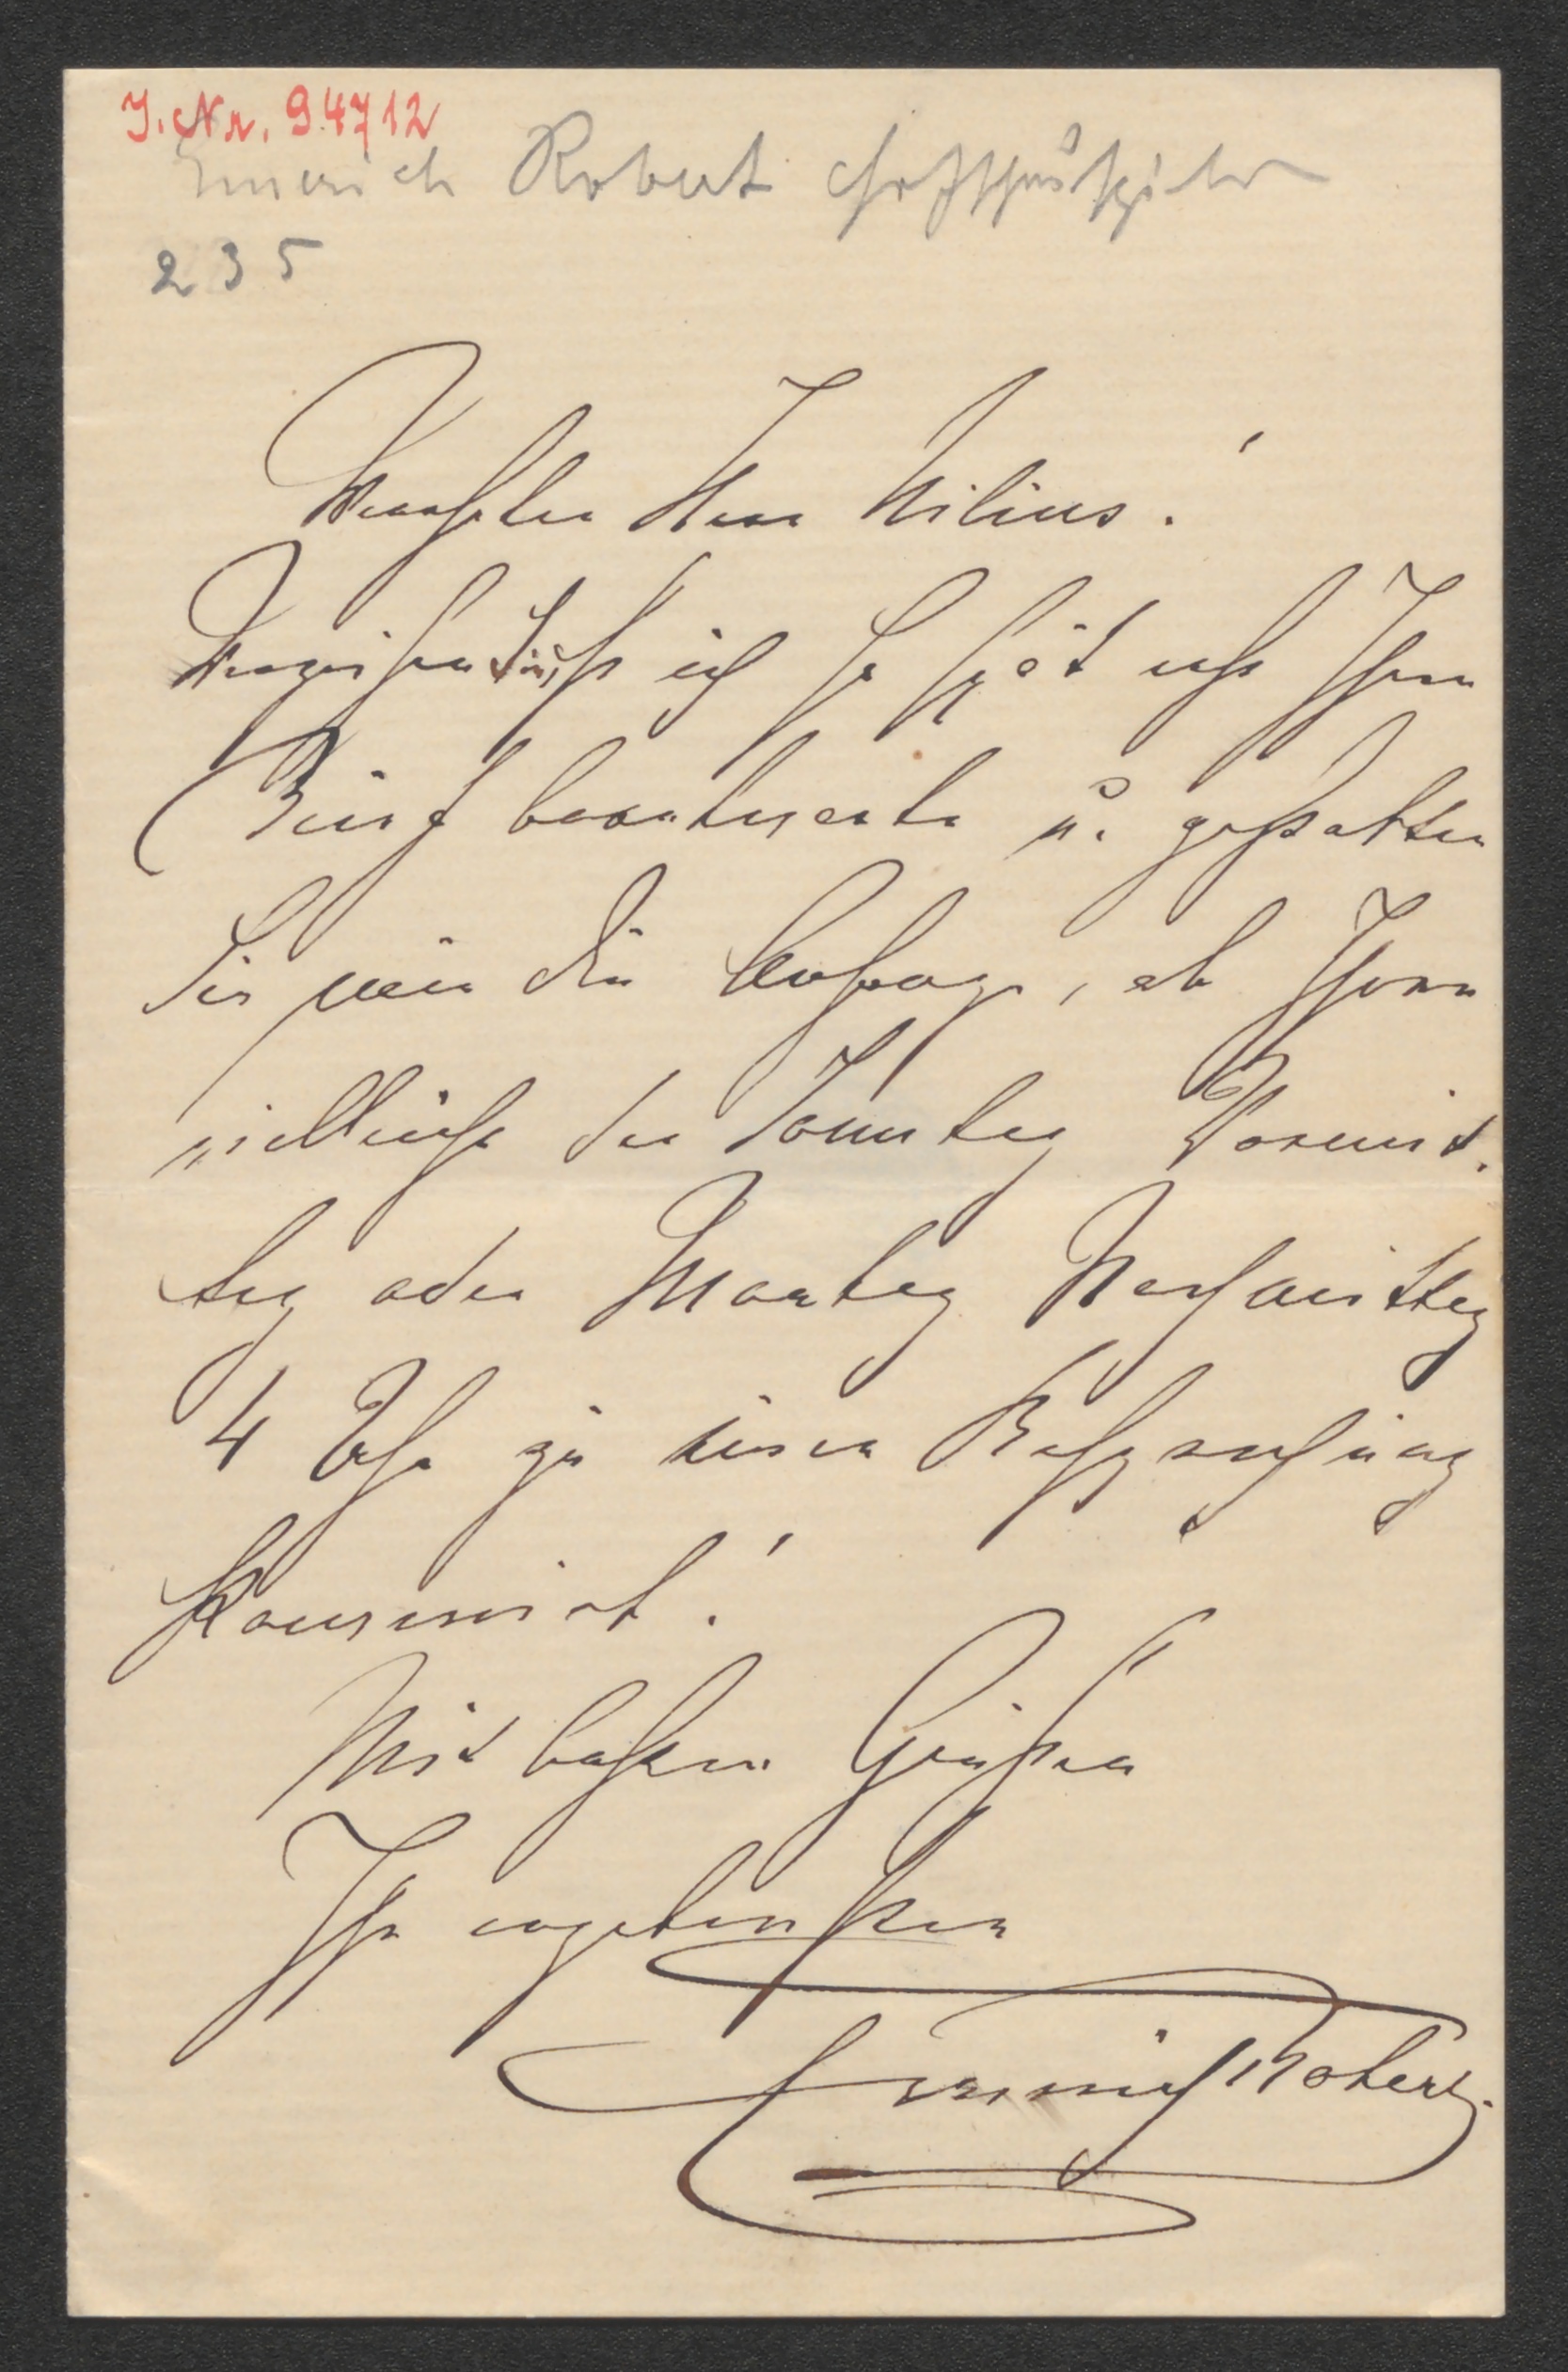 J. Nr. 94712
Emerich Robert Hofschauspieler
235
Verehrter Herr Nilius!
Verzeihen Sie, daß ich so spät erst Ihren
Brief beantworte u. gestatten
Sie mir die Anfrage, ob Ihnen
vielleicht der Sonntag Vormit-
tag oder Montag Nachmittag
4 Uhr zu einer Besprechung
konvenirt!
Mit besten Grüßen
Ihr ergebenster
Emerich Robert.